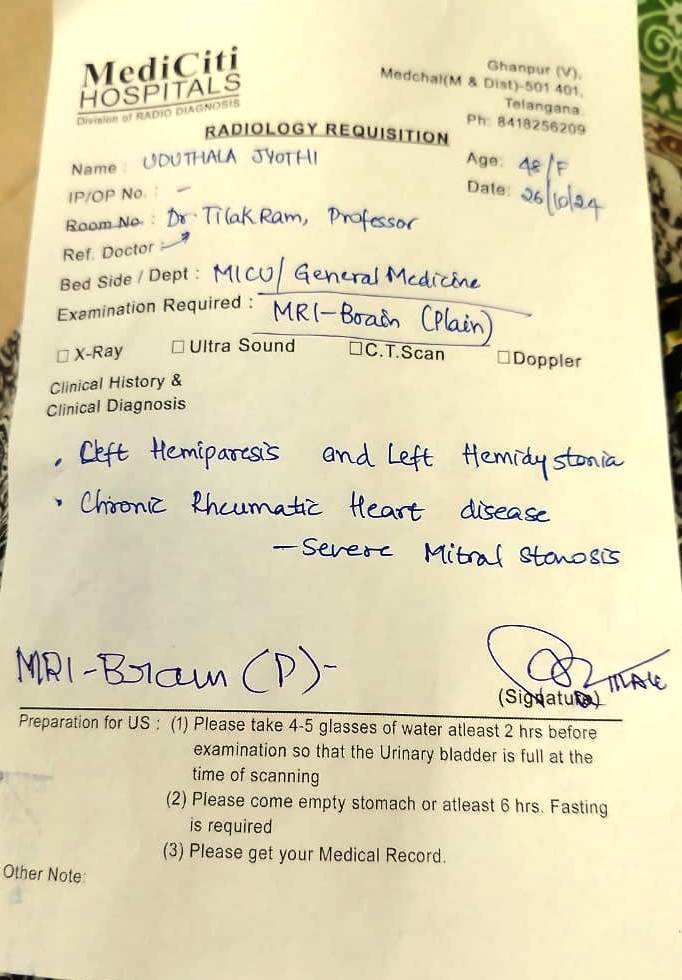 MediCiti
HOSPITALS
Division of RADIO DIAGNOSIS
Ghanpur (V),
Medchal(M & Dist)-501 401,
Telangana.
Ph: 8418256209
RADIOLOGY REQUISITION
Name : UDUTHALA JYOTHI
Age: 48/F
IP/OP No. : -
Date: 26/10/24
Room No. : Dr. Tilak Ram, Professor
Ref. Doctor :
Bed Side / Dept : MICU/ General Medicine
Examination Required : MRI-Brain (Plain)
☐ X-Ray ☐ Ultra Sound ☐ C.T.Scan ☐ Doppler
Clinical History &
Clinical Diagnosis
• Left Hemiparesis and Left Hemidystonia
• Chronic Rheumatic Heart disease
- Severe Mitral Stenosis
MRI-Brain (P)-
(Signature)
Preparation for US : (1) Please take 4-5 glasses of water atleast 2 hrs before
examination so that the Urinary bladder is full at the
time of scanning
(2) Please come empty stomach or atleast 6 hrs. Fasting
is required
(3) Please get your Medical Record.
Other Note: